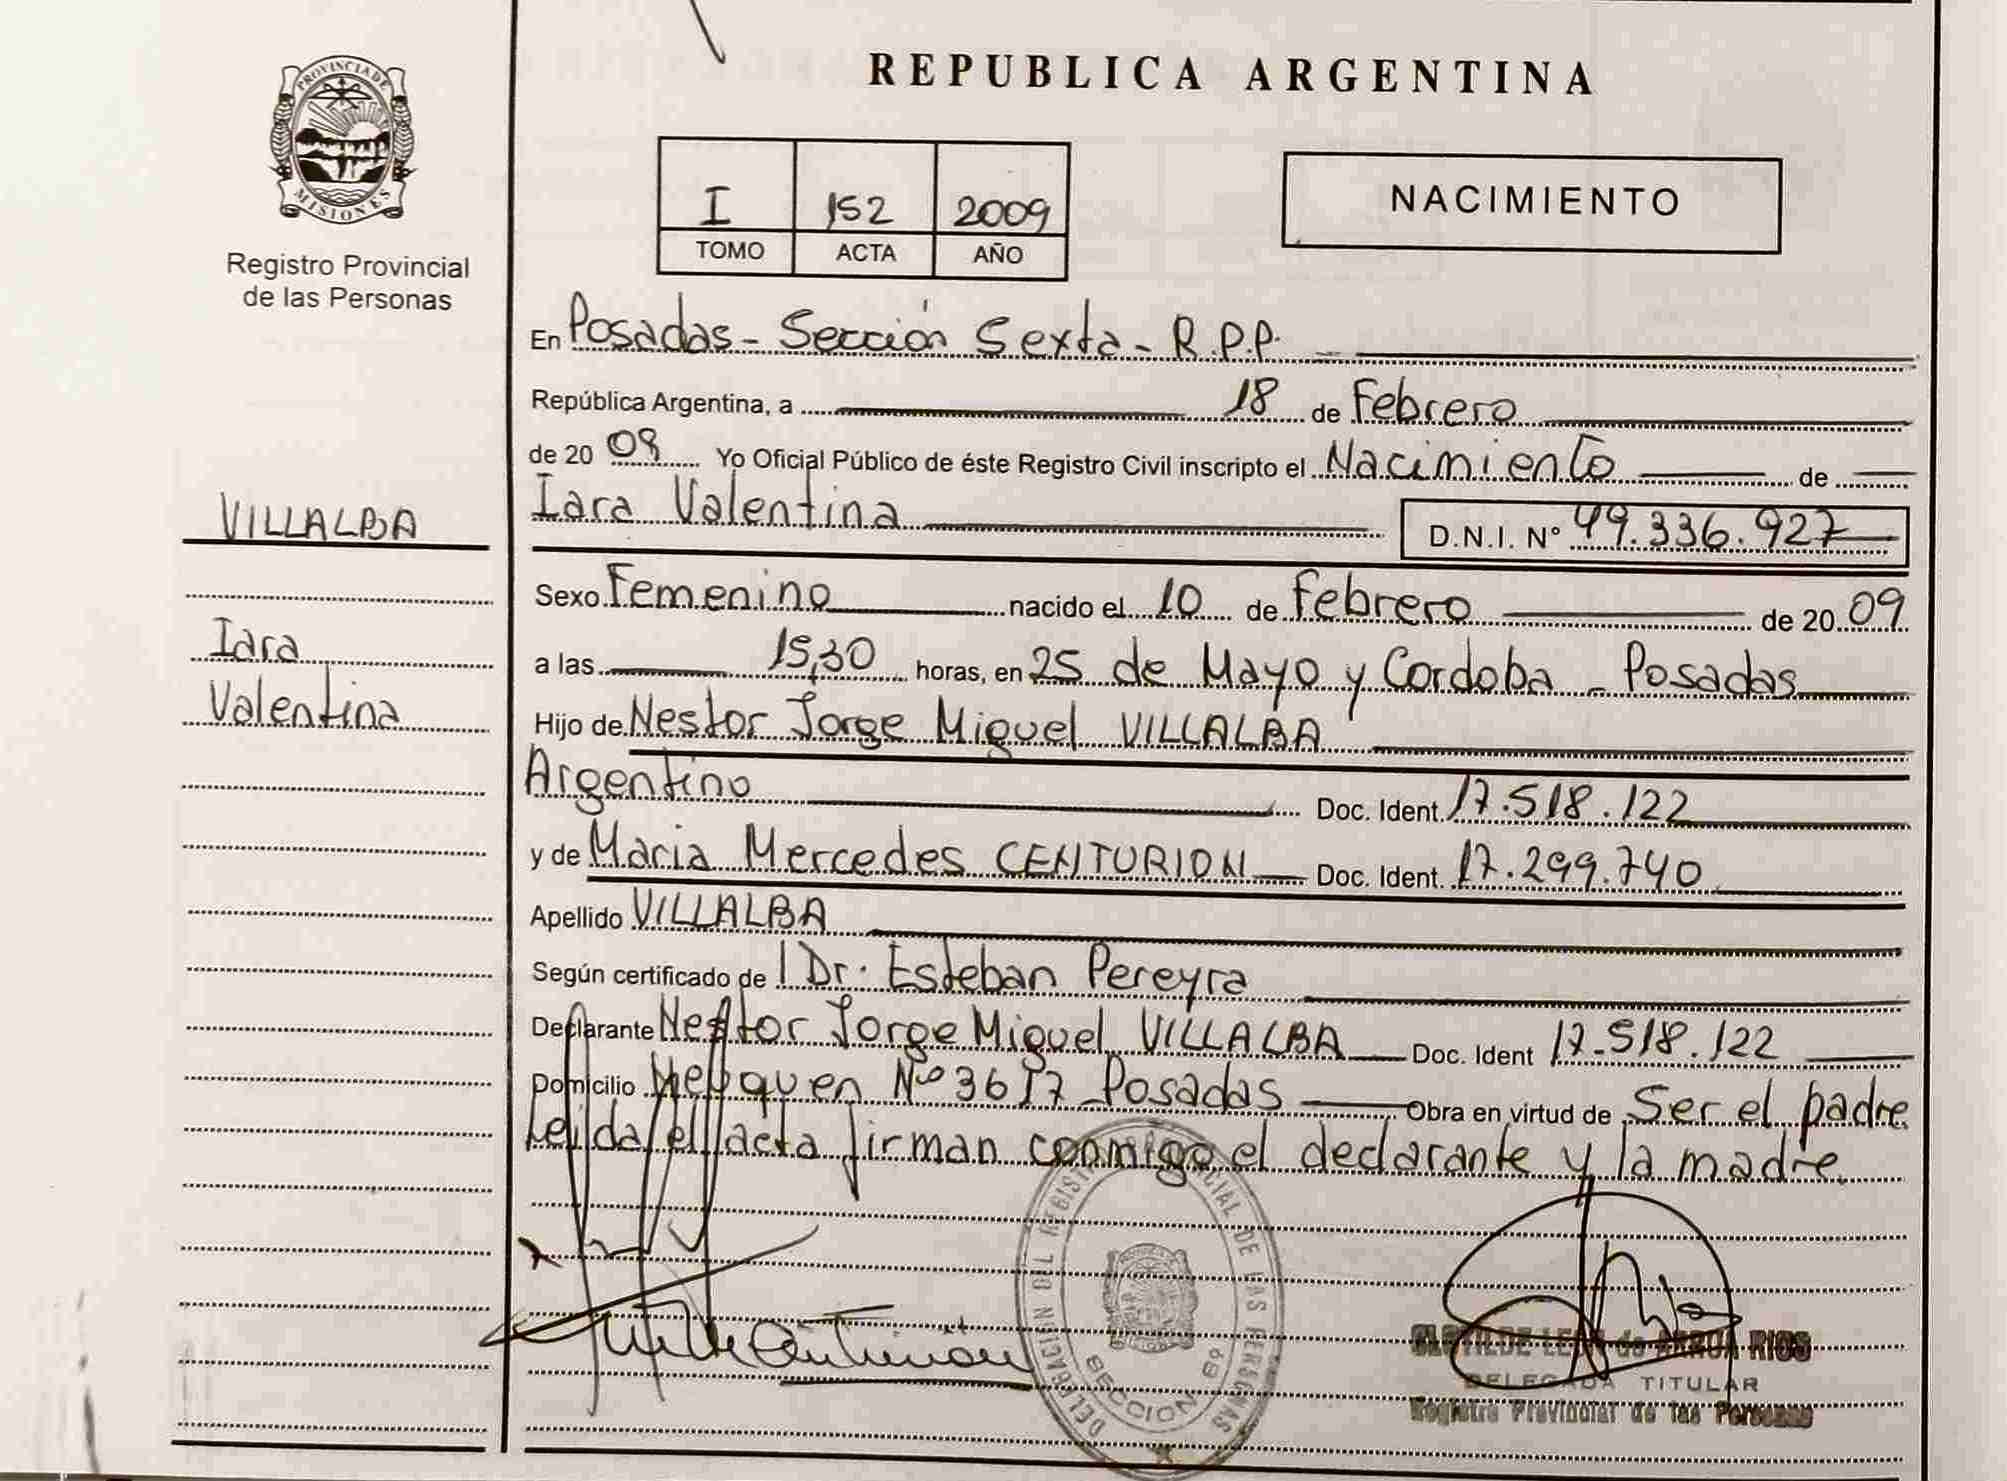 PROVINCIA DE
MISIONES
Registro Provincial
de las Personas
VILLALBA
Iara
Valentina
REPUBLICA ARGENTINA
I 152 2009
TOMO ACTA AÑO
NACIMIENTO
En Posadas - Sección Sexta - R.P.P.
República Argentina, a 18 de Febrero
de 20 09 Yo Oficial Público de éste Registro Civil inscripto el Nacimiento de
Iara Valentina D.N.I. Nº 49.336.927
Sexo Femenino nacido el 10 de Febrero de 20 09
a las 15,30 horas, en 25 de Mayo y Cordoba - Posadas
Hijo de Nestor Jorge Miguel VILLALBA
Argentino Doc. Ident. 17.518.122
y de Maria Mercedes CENTURION Doc. Ident. 17.299.740
Apellido VILLALBA
Según certificado de l Dr. Esteban Pereyra
Declarante Nestor Jorge Miguel VILLALBA Doc. Ident 17.518.122
Domicilio Neuquen Nº 3617 Posadas Obra en virtud de Ser el padre
Leida el acta firman conmigo el declarante y la madre.
DELEGACION DEL REGISTRO PROVINCIAL DE LAS PERSONAS
SECCION 6º
RIOS
DELEGADA TITULAR
Registro Provincial de las Personas